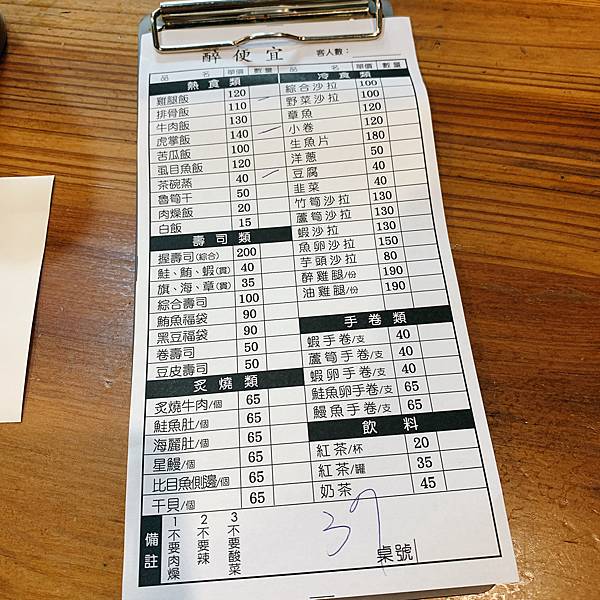 醉便宜 客人數：
品名 單價 數量
熱食類
雞腿飯 120
排骨飯 110
牛肉飯 130
虎掌飯 140
苦瓜飯 100
虱目魚飯 120
茶碗蒸 40
魯筍干 50
肉燥飯 20
白飯 15
壽司類
握壽司(綜合) 200
鮭、鮪、蝦(貫) 40
旗、海、章(貫) 35
綜合壽司 100
鮪魚福袋 90
黑豆福袋 90
卷壽司 50
豆皮壽司 50
炙燒類
炙燒牛肉/個 65
鮭魚肚/個 65
海麗肚/個 65
星鰻/個 65
比目魚側邊/個 65
干貝/個 65
品名 單價 數量
冷食類
綜合沙拉 100
野菜沙拉 100
章魚 120
小卷 120
生魚片 180
洋蔥 50
豆腐 40
韭菜 40
竹筍沙拉 130
蘆筍沙拉 130
蝦沙拉 130
魚卵沙拉 150
芋頭沙拉 80
醉雞腿/份 190
油雞腿/份 190
手卷類
蝦手卷/支 40
蘆筍手卷/支 40
蝦卵手卷/支 40
鮭魚卵手卷/支 65
鰻魚手卷/支 65
飲料
紅茶/杯 20
紅茶/罐 35
奶茶 45
備註
1不要肉燥
2不要辣
3不要酸菜
37
桌號